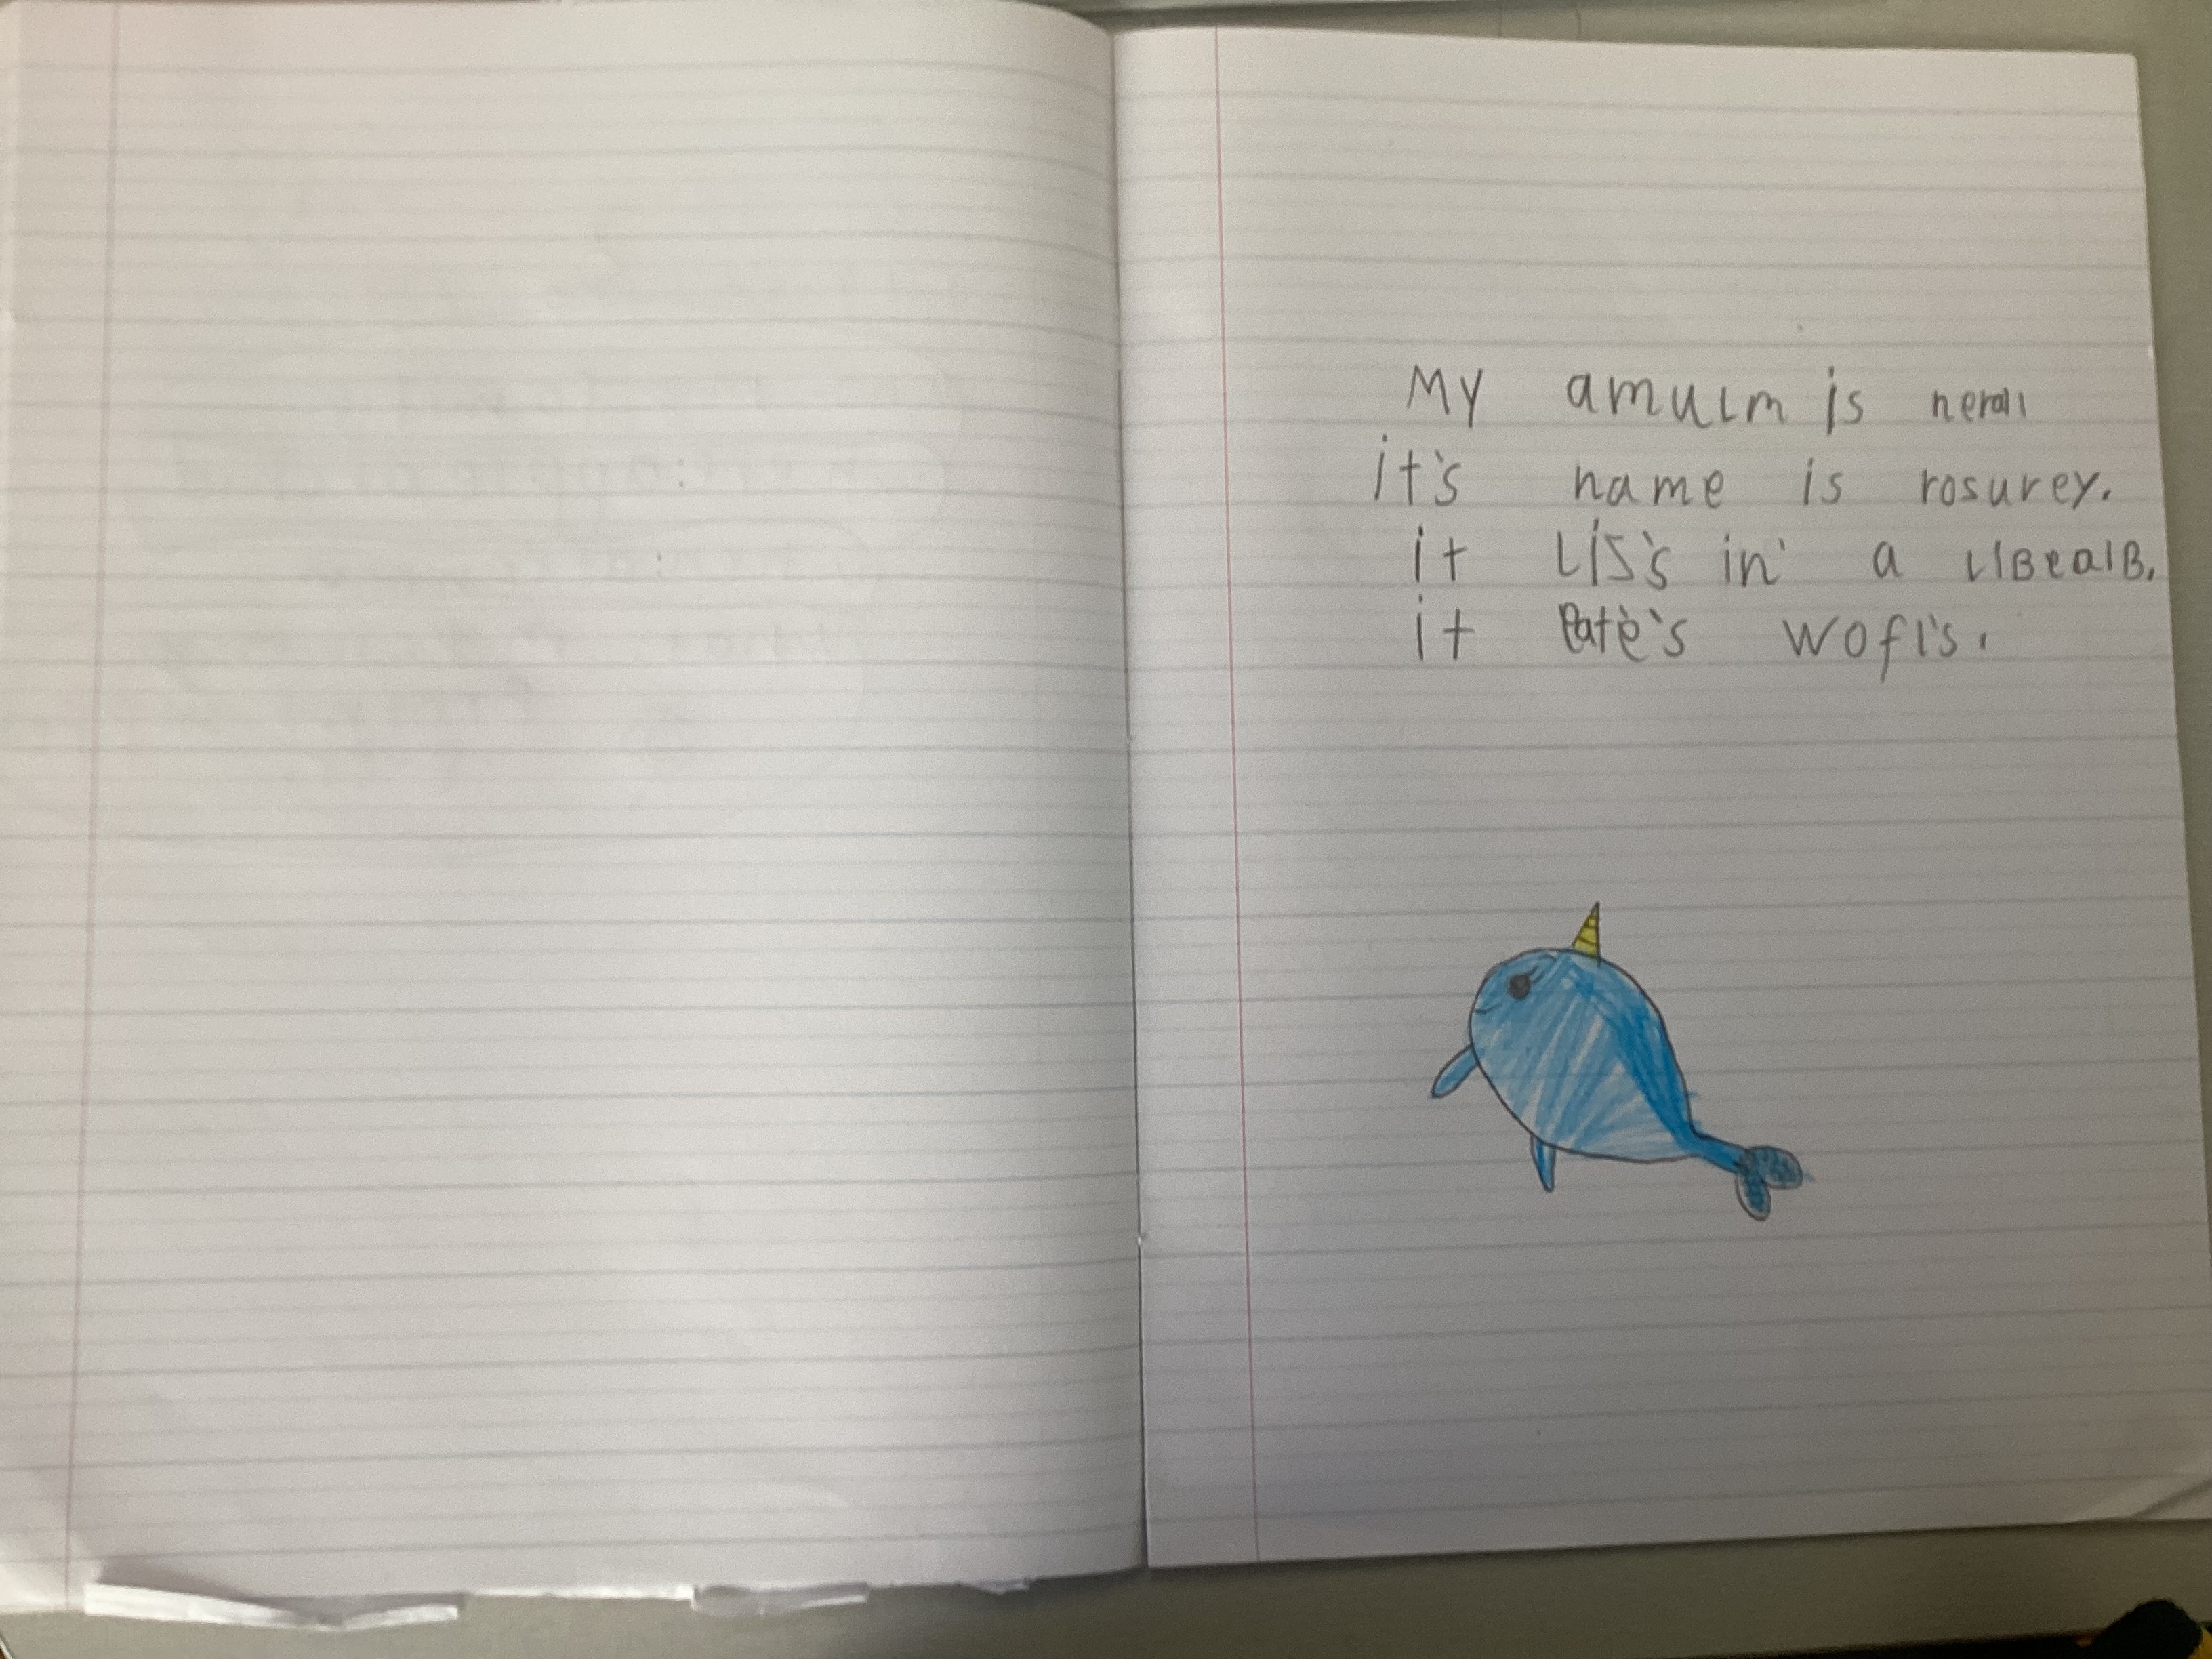 My amulm is nerall
it's name is rosurey.
it Lis's in a LIBealB.
it eate's wofl's.